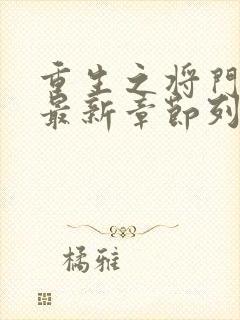 重生之将门
最新章节列
橘雅